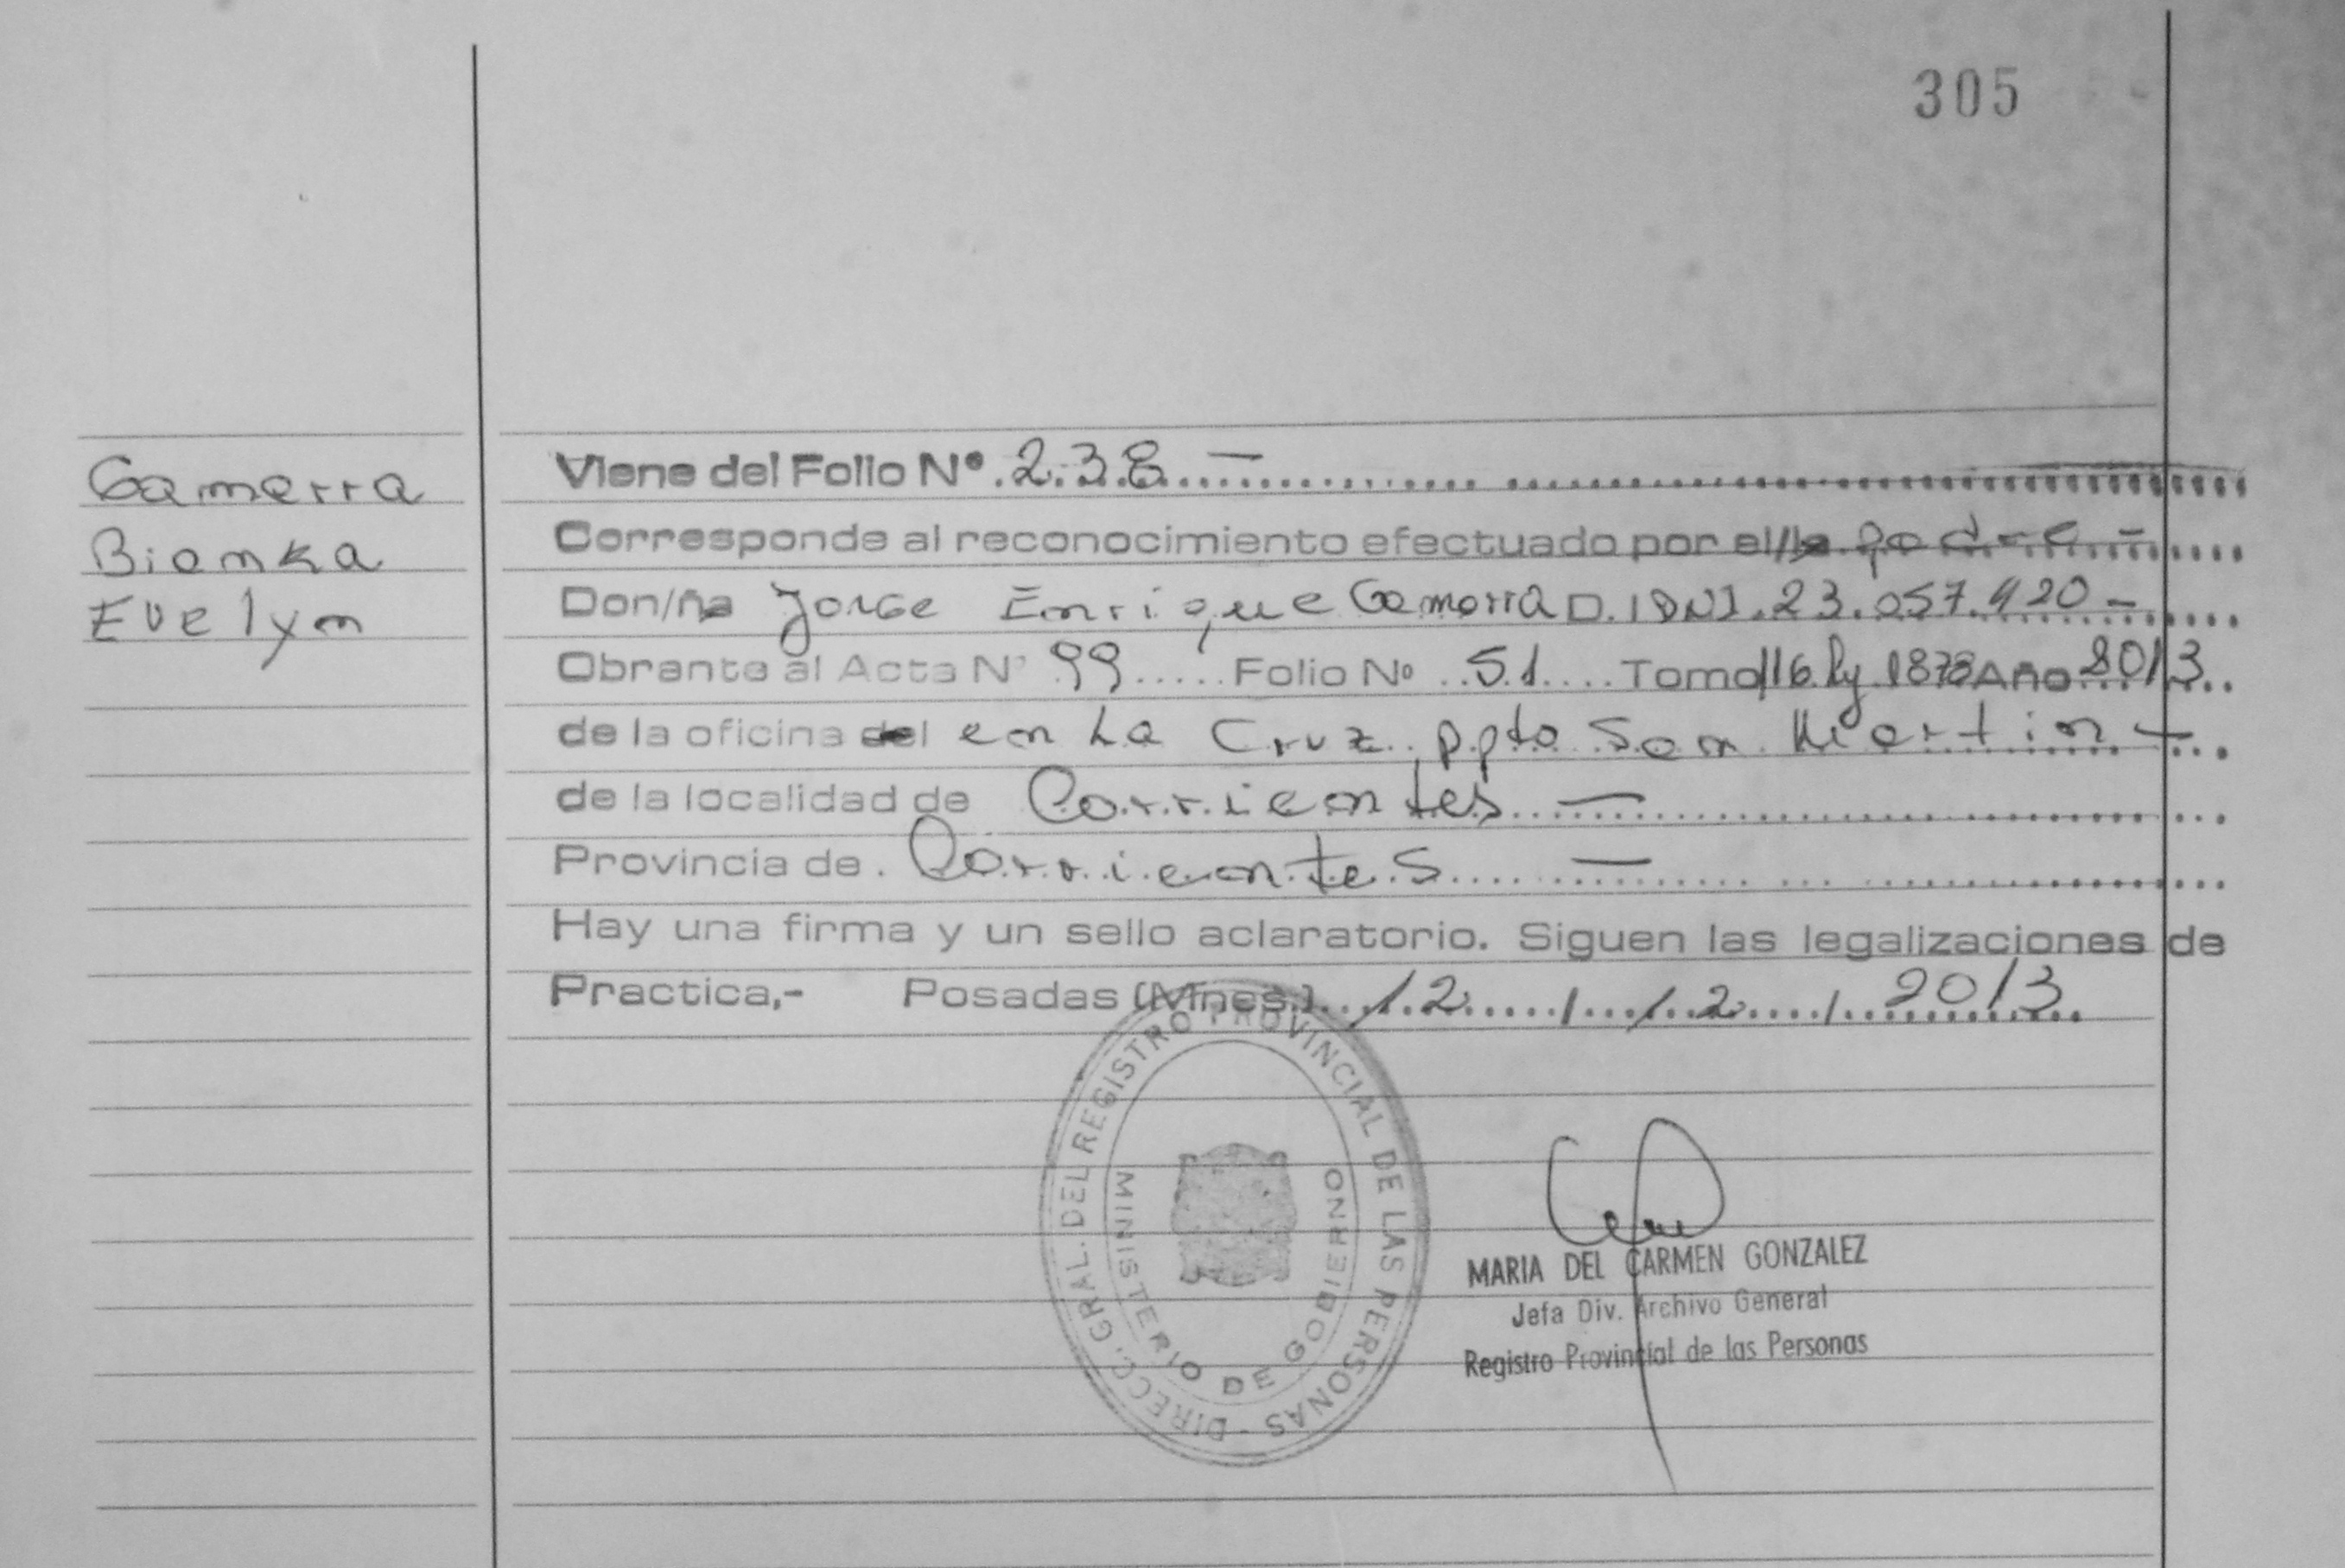 305
Gamerra
Bianka
Evelyn
Viene del Folio Nº 238.-
Corresponde al reconocimiento efectuado por el/la padre -
Don/ña Jorge Enrique Gamerra D. (DNI. 23.057.920 -
Obrante al Acta Nº 99 Folio Nº 51 Tomo 116 Ly 1878 Año 2013
de la oficina del en La Cruz, Dpto San Martin -
de la localidad de Corrientes -
Provincia de. Corrientes -
Hay una firma y un sello aclaratorio. Siguen las legalizaciones de
Practica,- Posadas (Mnes.) 12 / 12 / 2013
DIRECC. GRAL. DEL REGISTRO PROVINCIAL DE LAS PERSONAS -
MINISTERIO DE GOBIERNO
MARIA DEL CARMEN GONZALEZ
Jefa Div. Archivo General
Registro Provincial de las Personas